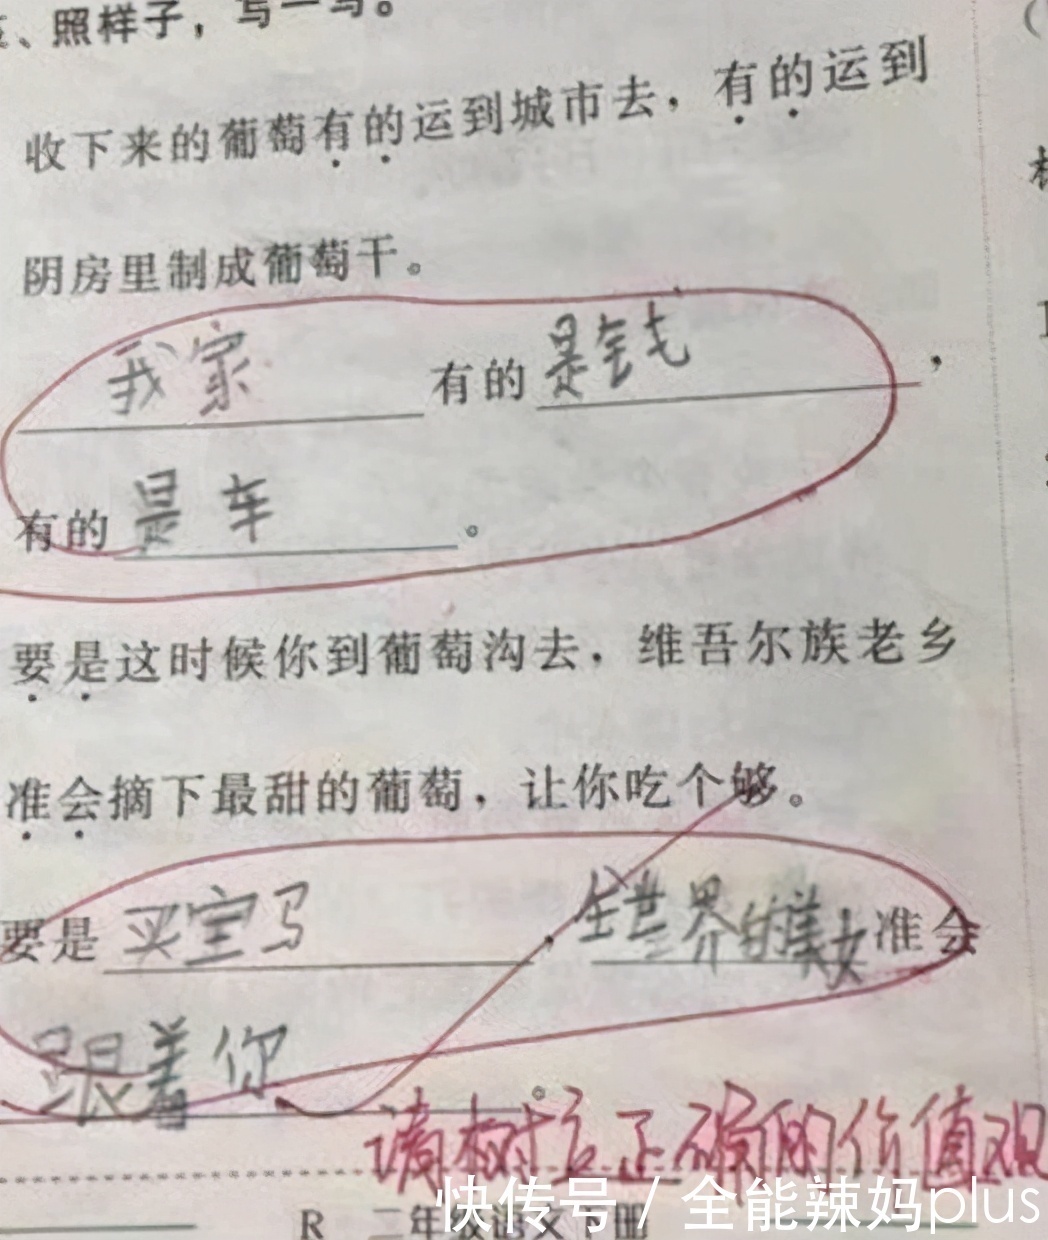 、照样子，写一写。
收下来的葡萄有的运到城市去，有的运到
阴房里制成葡萄干。
我家有的是钱，
有的是车。
要是这时候你到葡萄沟去，维吾尔族老乡
准会摘下最甜的葡萄，让你吃个够。
要是买宝马，全世界的美女准会
跟着你。
请树立正确的价值观
快传号 / 全能辣妈plus
R 二年级语文下册